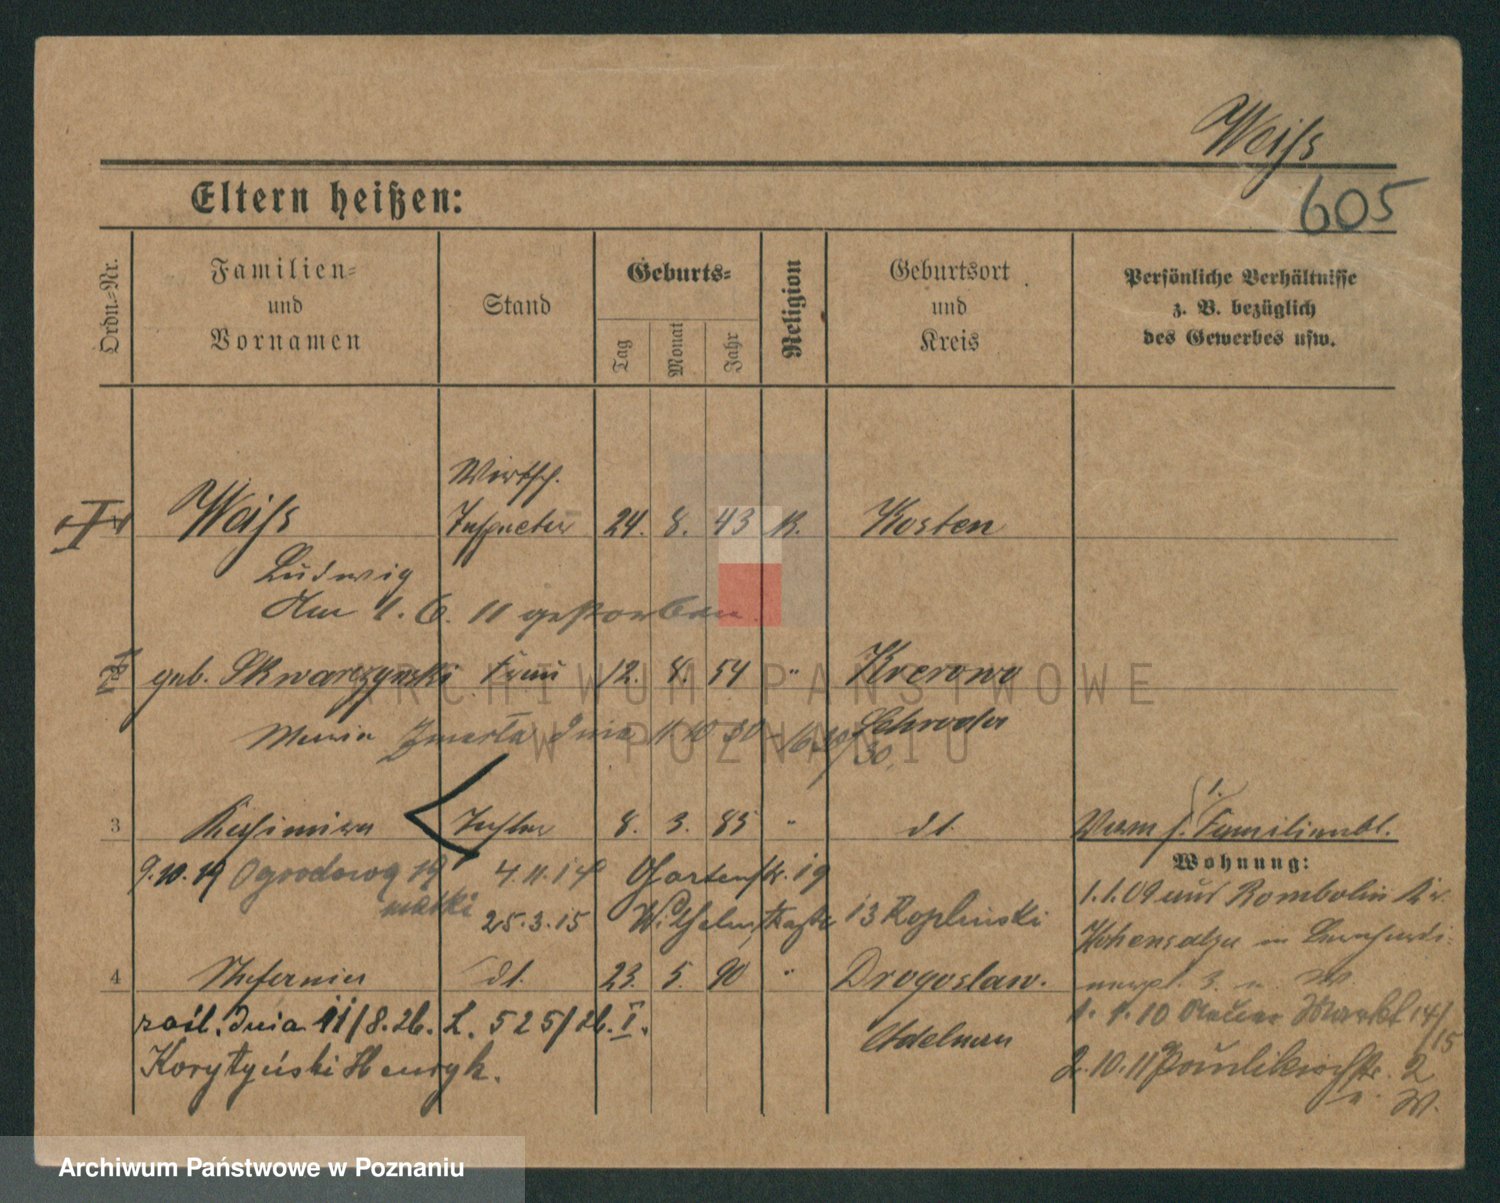 Weiss
605
Eltern heißen:
Ordn.-Nr.
Familien-
und
Vornamen
Stand
Geburts-
Tag
Monat
Jahr
Religion
Geburtsort
und
Kreis
Persönliche Verhältnisse
z. B. bezüglich
des Gewerbes usw.
Wirtsch.
Weiss Inspector 24. 8. 43 K. Kosten
Ludwig
Am 1. 6. 11 gestorben.
geb. Skwarczynski Frau 12. 8. 54 " Krerowo
Maria Zmarła dnia 11.10.30 Schroda
3 Kasimira Tochter 8. 3. 85 " dt. Verm f. Familienbl.
Wohnung:
9.10.19 Ogrodowa 19 4.11.14 Gartenstr. 19
matki
25.3.15 Wilhelmstraße 13 Koplinski
1.1.09 aus Rombolin Kr.
Hohensalza
4 dt. 23. 5. 90 " Drogoslaw.
Adelnau
zaśl. dnia 11/8.26. L. 525/26. I.
Korytyński Henryk.
1. 1. 10 Markt 14/15
2.10.11 Paulikirchstr. 2
W.
ARCHIWUM PAŃSTWOWE
W POZNANIU
Archiwum Państwowe w Poznaniu